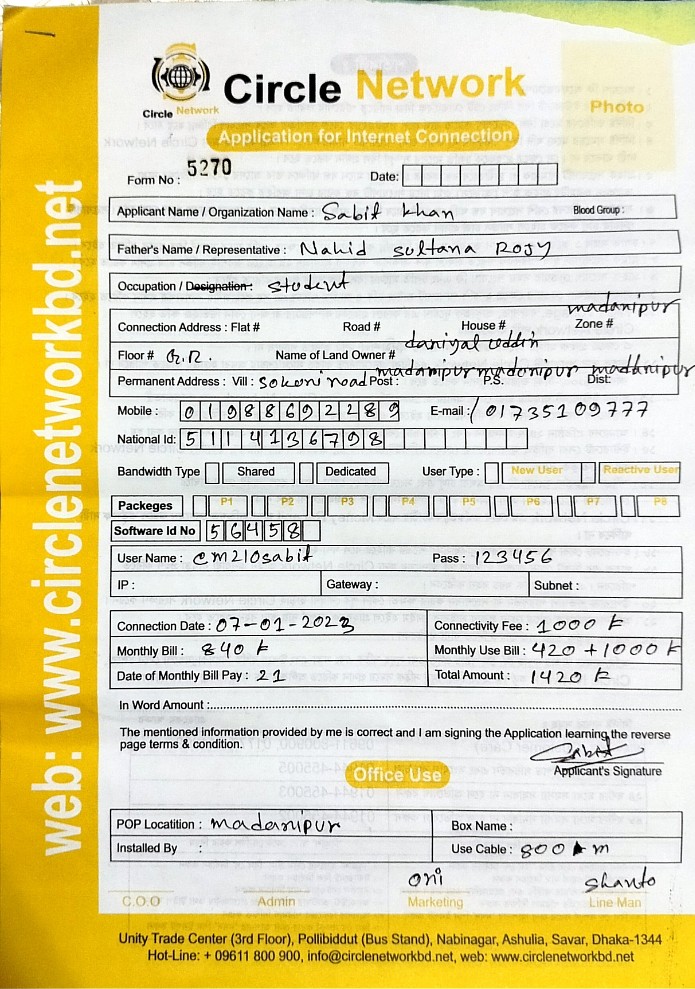 Circle Network
Circle Network
Photo
Application for Internet Connection
Form No : 5270 Date:
Applicant Name / Organization Name : Sabit khan Blood Group :
Father's Name / Representative : Nahid sultana ROJY
Occupation / Designation: student
madanipur
Connection Address : Flat # Road # House # Zone #
daniyal uddin
Floor # G.R. Name of Land Owner #
madanipur madanipur madanipur
Permanent Address : Vill : sokeni road Post : P.S. Dist:
Mobile : 01988692289 E-mail : / 01735109777
National Id: 5114136798
Bandwidth Type Shared Dedicated User Type : New User Reactive User
Packeges P1 P2 P3 P4 P5 P6 P7 P8
Software Id No 56458
User Name : cm210sabit Pass : 123456
IP : Gateway : Subnet :
Connection Date : 07-01-2023 Connectivity Fee : 1000 ৳
Monthly Bill : 840 ৳ Monthly Use Bill : 420 + 1000 ৳
Date of Monthly Bill Pay : 21 Total Amount : 1420 ৳
In Word Amount :
The mentioned information provided by me is correct and I am signing the Application learning the reverse
page terms & condition.
Sabit
Applicant's Signature
Office Use
POP Locatition : madanipur Box Name :
Installed By : Use Cable : 800 m
oni shanto
C.O.O Admin Marketing Line Man
Unity Trade Center (3rd Floor), Pollibiddut (Bus Stand), Nabinagar, Ashulia, Savar, Dhaka-1344
Hot-Line: + 09611 800 900, info@circlenetworkbd.net, web: www.circlenetworkbd.net
web: www.circlenetworkbd.net